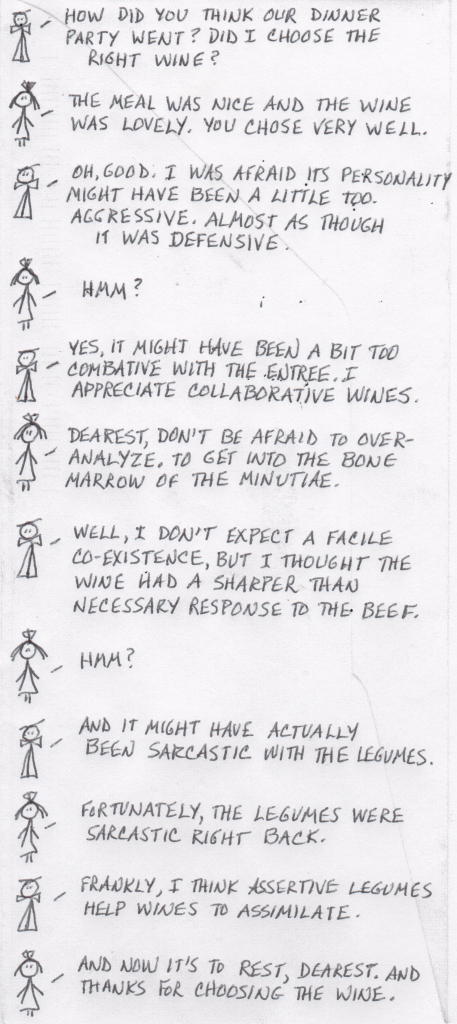 HOW DID YOU THINK OUR DINNER
PARTY WENT? DID I CHOOSE THE
RIGHT WINE?
THE MEAL WAS NICE AND THE WINE
WAS LOVELY. YOU CHOSE VERY WELL.
OH, GOOD. I WAS AFRAID ITS PERSONALITY
MIGHT HAVE BEEN A LITTLE TOO.
AGGRESSIVE. ALMOST AS THOUGH
IT WAS DEFENSIVE.
HMM?
YES, IT MIGHT HAVE BEEN A BIT TOO
COMBATIVE WITH THE ENTREE. I
APPRECIATE COLLABORATIVE WINES.
DEAREST, DON'T BE AFRAID TO OVER-
ANALYZE. TO GET INTO THE BONE
MARROW OF THE MINUTIAE.
WELL, I DON'T EXPECT A FACILE
CO-EXISTENCE, BUT I THOUGHT THE
WINE HAD A SHARPER THAN
NECESSARY RESPONSE TO THE BEEF.
HMM?
AND IT MIGHT HAVE ACTUALLY
BEEN SARCASTIC WITH THE LEGUMES.
FORTUNATELY, THE LEGUMES WERE
SARCASTIC RIGHT BACK.
FRANKLY, I THINK ASSERTIVE LEGUMES
HELP WINES TO ASSIMILATE.
AND NOW IT'S TO REST, DEAREST. AND
THANKS FOR CHOOSING THE WINE.